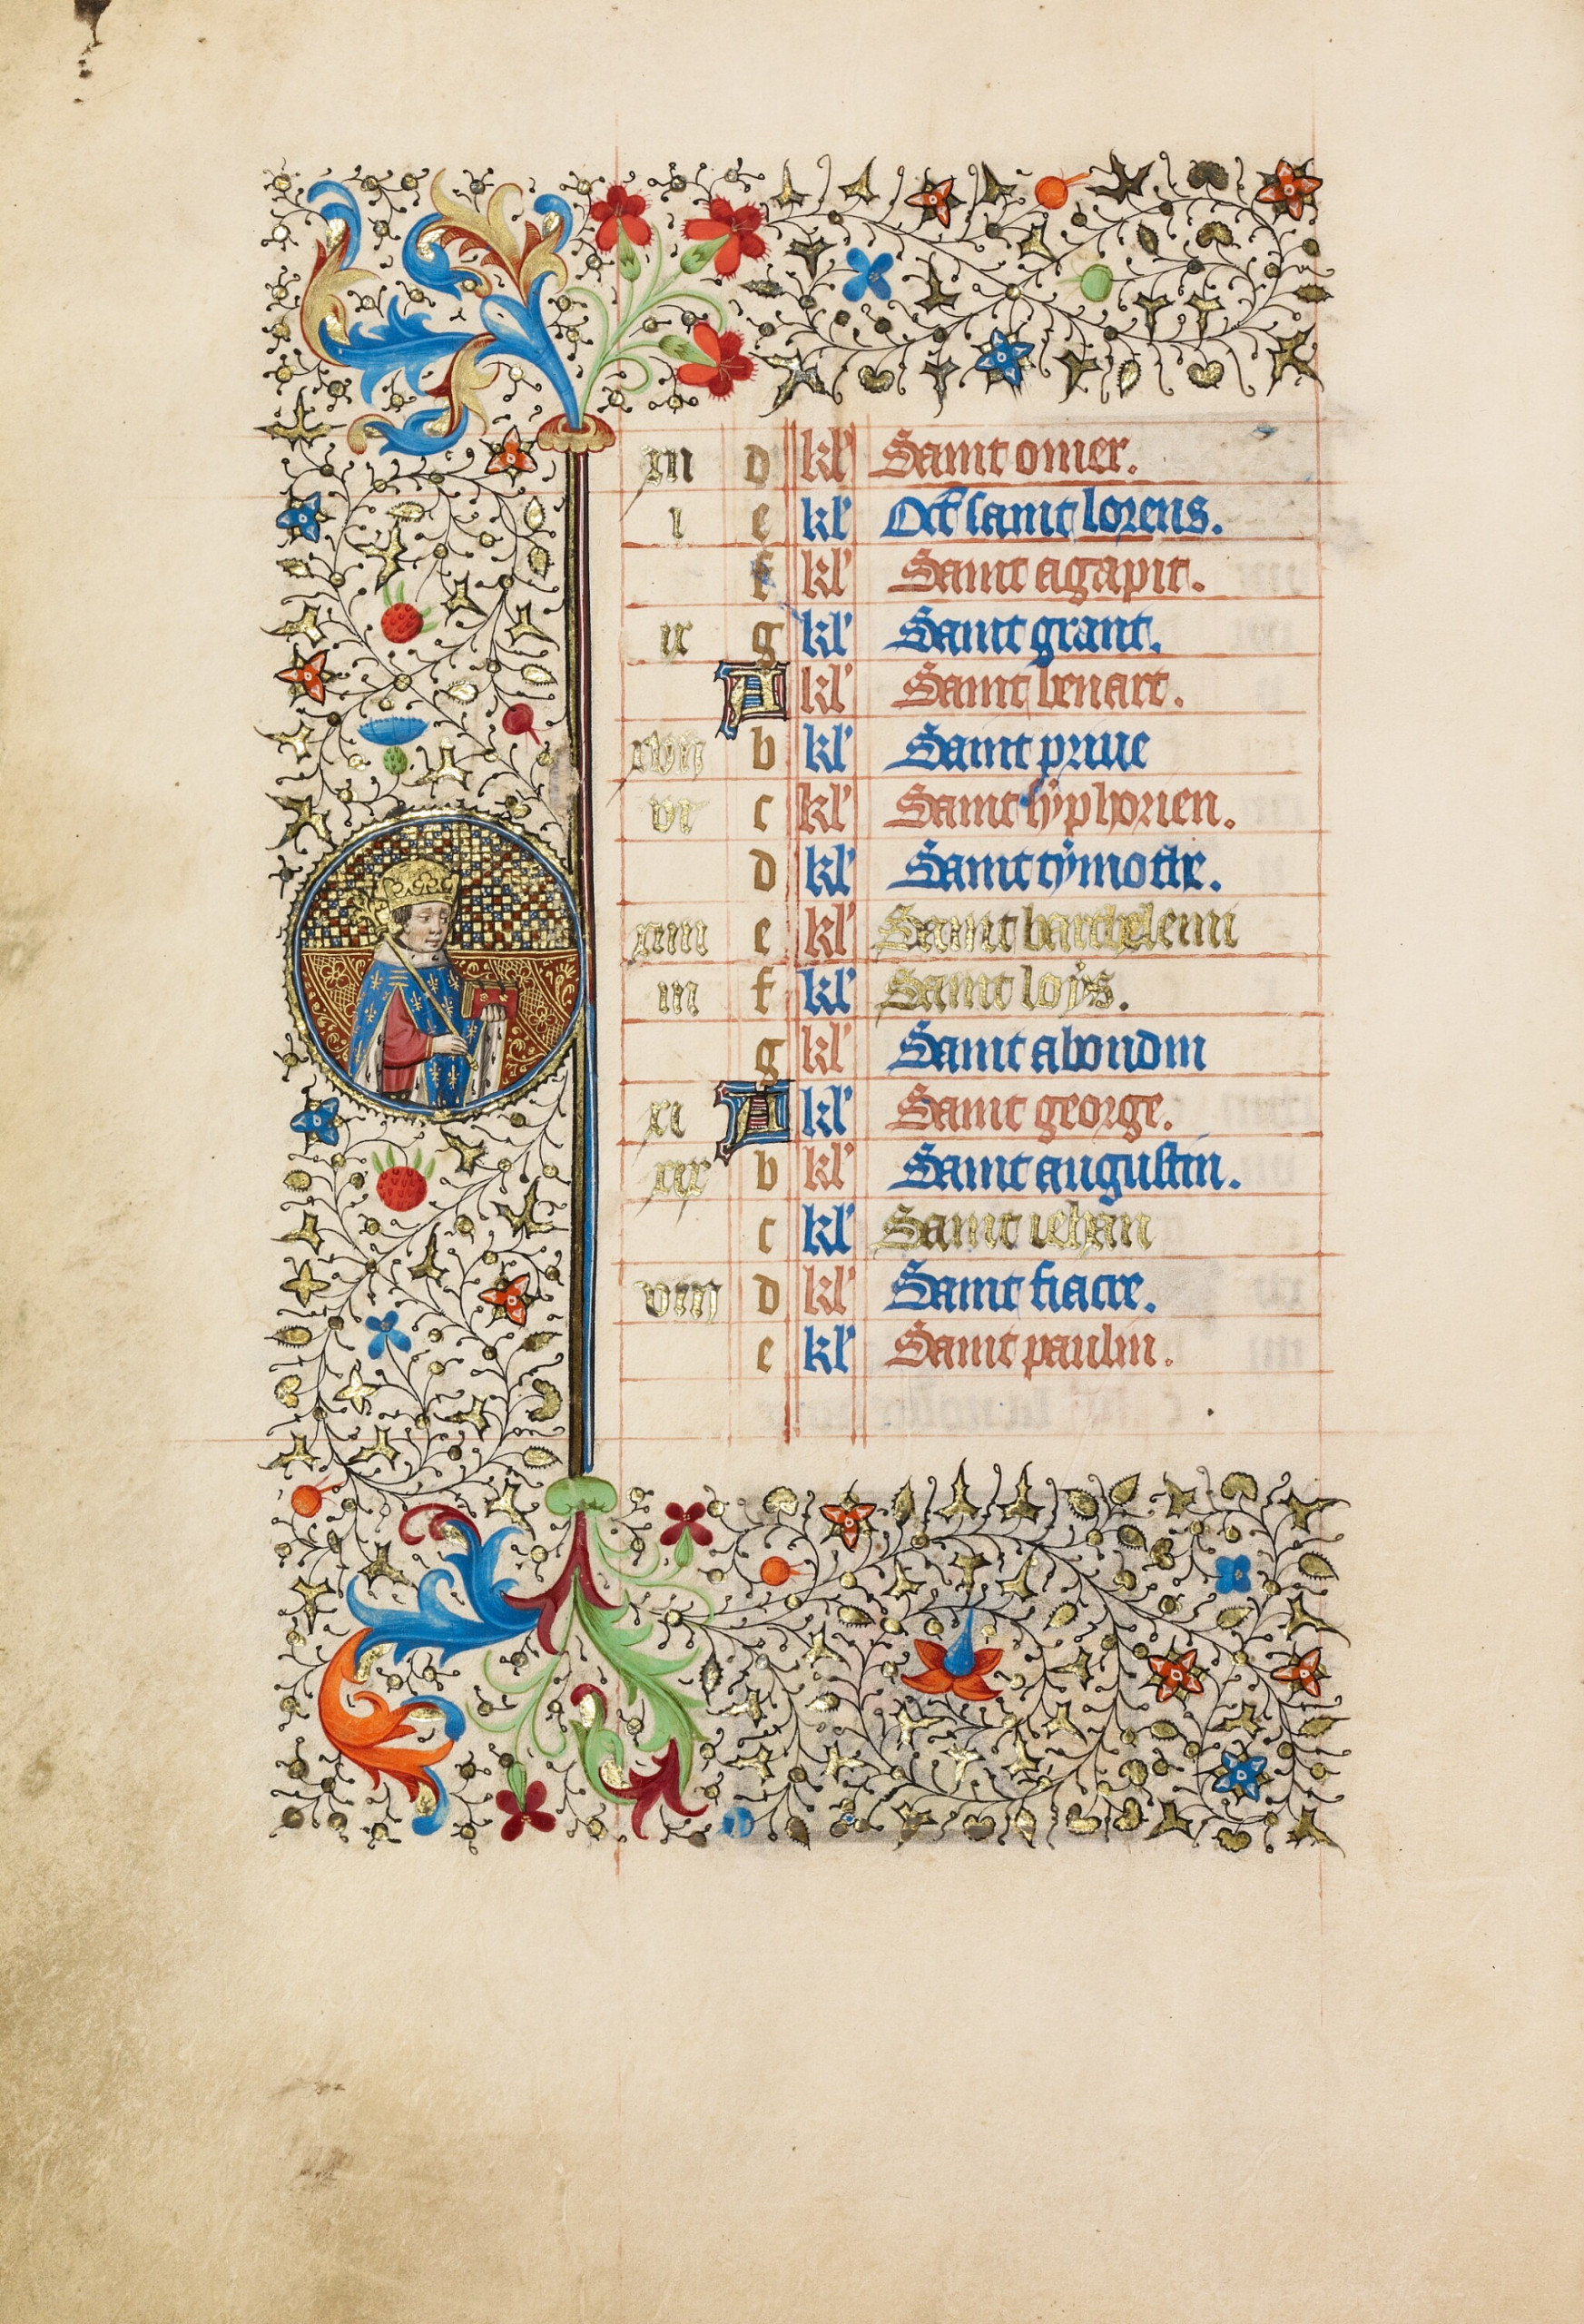 xiii d kl' Saint omer.
i e kl' Oct saint lorens.
f kl' Saint agapit.
ix g kl' Saint grant.
A kl' Saint benart.
xvii b kl' Saint priue
vi c kl' Saint syphorien.
d kl' Saint tymothe.
xiiii e kl' Saint barthelemi
iii f kl' Saint loys.
g kl' Saint abondin
xi A kl' Saint george.
xix b kl' Saint augustin.
c kl' Saint iehan
viii d kl' Saint fiacre.
e kl' Saint paulin.